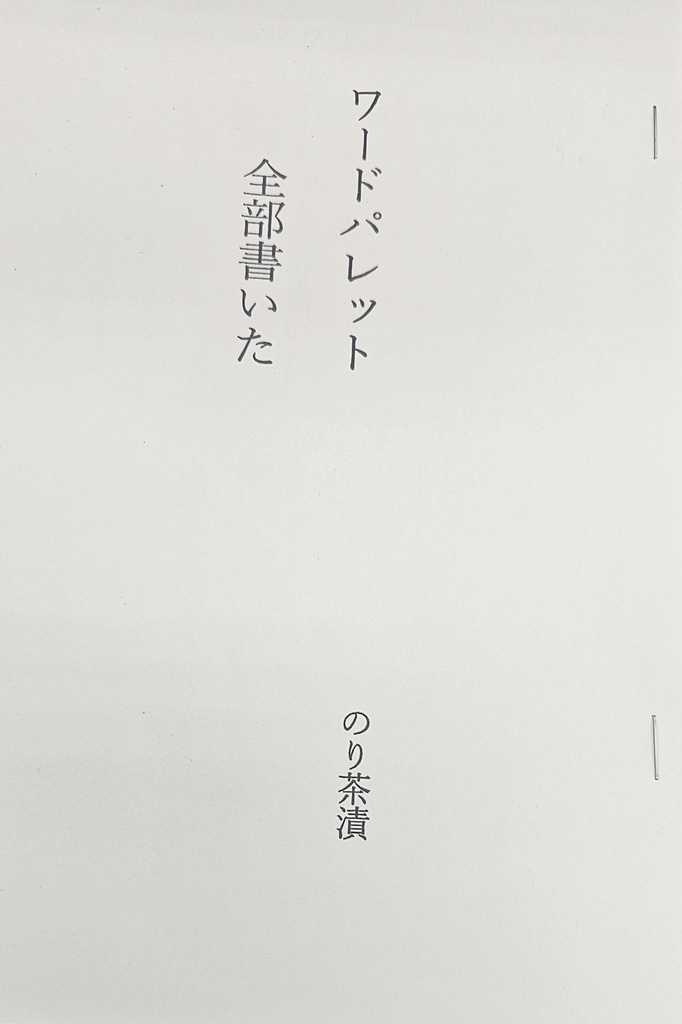 ワードパレット
全部書いた
のり茶漬